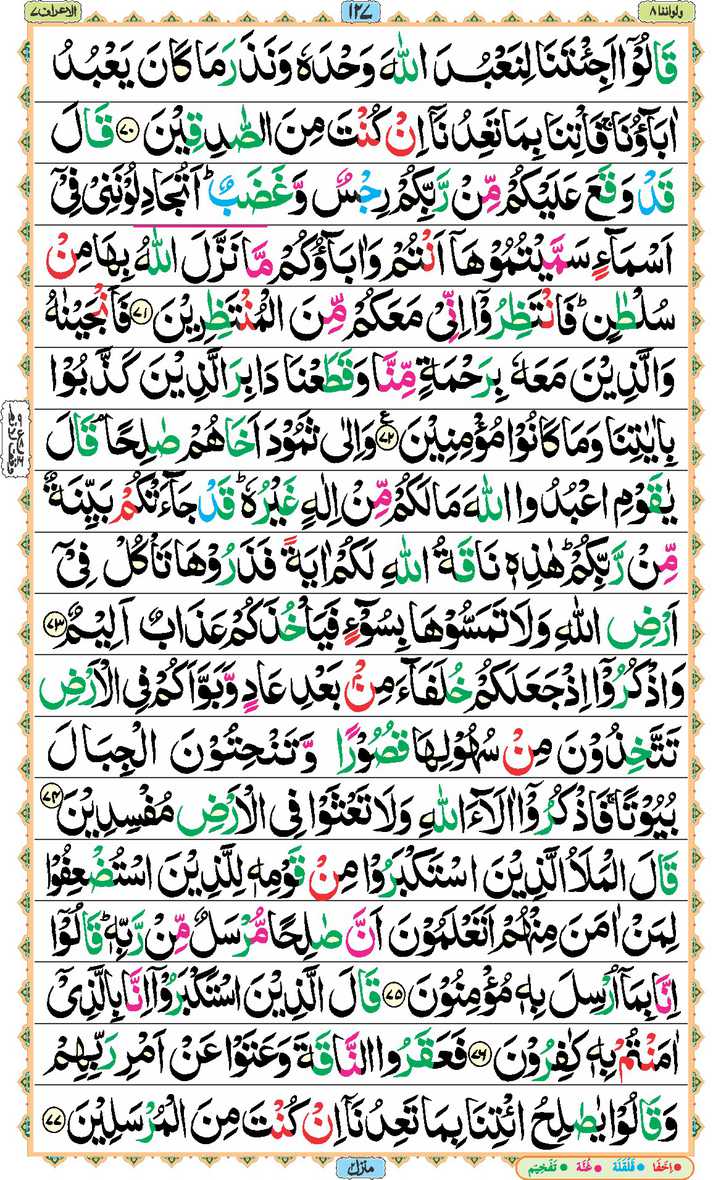 ولواننا ۸
۱۲۷
الاعراف ۷
قَالُوْۤا اَجِئْتَنَا لِنَعْبُدَ اللّٰهَ وَحْدَهٗ وَنَذَرَ مَا كَانَ يَعْبُدُ
اٰبَآؤُنَا ۚ فَاْتِنَا بِمَا تَعِدُنَاۤ اِنْ كُنْتَ مِنَ الصّٰدِقِيْنَ ﴿۷۰﴾ قَالَ
قَدْ وَقَعَ عَلَيْكُمْ مِّنْ رَّبِّكُمْ رِجْسٌ وَّغَضَبٌ ؕ اَتُجَادِلُوْنَنِىْ فِىْۤ
اَسْمَآءٍ سَمَّيْتُمُوْهَاۤ اَنْتُمْ وَاٰبَآؤُكُمْ مَّا نَزَّلَ اللّٰهُ بِهَا مِنْ
سُلْطٰنٍ ؕ فَانْتَظِرُوْۤا اِنِّىْ مَعَكُمْ مِّنَ الْمُنْتَظِرِيْنَ ﴿۷۱﴾ فَاَنْجَيْنٰهُ
وَالَّذِيْنَ مَعَهٗ بِرَحْمَةٍ مِّنَّا وَقَطَعْنَا دَابِرَ الَّذِيْنَ كَذَّبُوْا
بِاٰيٰتِنَا وَمَا كَانُوْا مُؤْمِنِيْنَ ﴿۷۲﴾ ع وَاِلٰى ثَمُوْدَ اَخَاهُمْ صٰلِحًا ۘ قَالَ
يٰقَوْمِ اعْبُدُوا اللّٰهَ مَا لَكُمْ مِّنْ اِلٰهٍ غَيْرُهٗ ؕ قَدْ جَآءَتْكُمْ بَيِّنَةٌ
مِّنْ رَّبِّكُمْ ؕ هٰذِهٖ نَاقَةُ اللّٰهِ لَكُمْ اٰيَةً فَذَرُوْهَا تَاْكُلْ فِىْۤ
اَرْضِ اللّٰهِ وَلَا تَمَسُّوْهَا بِسُوْٓءٍ فَيَاْخُذَكُمْ عَذَابٌ اَلِيْمٌ ﴿۷۳﴾
وَاذْكُرُوْۤا اِذْ جَعَلَكُمْ خُلَفَآءَ مِنْۢ بَعْدِ عَادٍ وَّبَوَّاَكُمْ فِى الْاَرْضِ
تَتَّخِذُوْنَ مِنْ سُهُوْلِهَا قُصُوْرًا وَّتَنْحِتُوْنَ الْجِبَالَ
بُيُوْتًا ۚ فَاذْكُرُوْۤا اٰلَآءَ اللّٰهِ وَلَا تَعْثَوْا فِى الْاَرْضِ مُفْسِدِيْنَ ﴿۷۴﴾
قَالَ الْمَلَاُ الَّذِيْنَ اسْتَكْبَرُوْا مِنْ قَوْمِهٖ لِلَّذِيْنَ اسْتُضْعِفُوْا
لِمَنْ اٰمَنَ مِنْهُمْ اَتَعْلَمُوْنَ اَنَّ صٰلِحًا مُّرْسَلٌ مِّنْ رَّبِّهٖ ؕ قَالُوْۤا
اِنَّا بِمَاۤ اُرْسِلَ بِهٖ مُؤْمِنُوْنَ ﴿۷۵﴾ قَالَ الَّذِيْنَ اسْتَكْبَرُوْۤا اِنَّا بِالَّذِىْۤ
اٰمَنْتُمْ بِهٖ كٰفِرُوْنَ ﴿۷۶﴾ فَعَقَرُوا النَّاقَةَ وَعَتَوْا عَنْ اَمْرِ رَبِّهِمْ
وَقَالُوْا يٰصٰلِحُ ائْتِنَا بِمَا تَعِدُنَاۤ اِنْ كُنْتَ مِنَ الْمُرْسَلِيْنَ ﴿۷۷﴾
منزل ۲
اِخْفَا قَلْقَلَهْ غُنَّهْ تَفْخِيْم